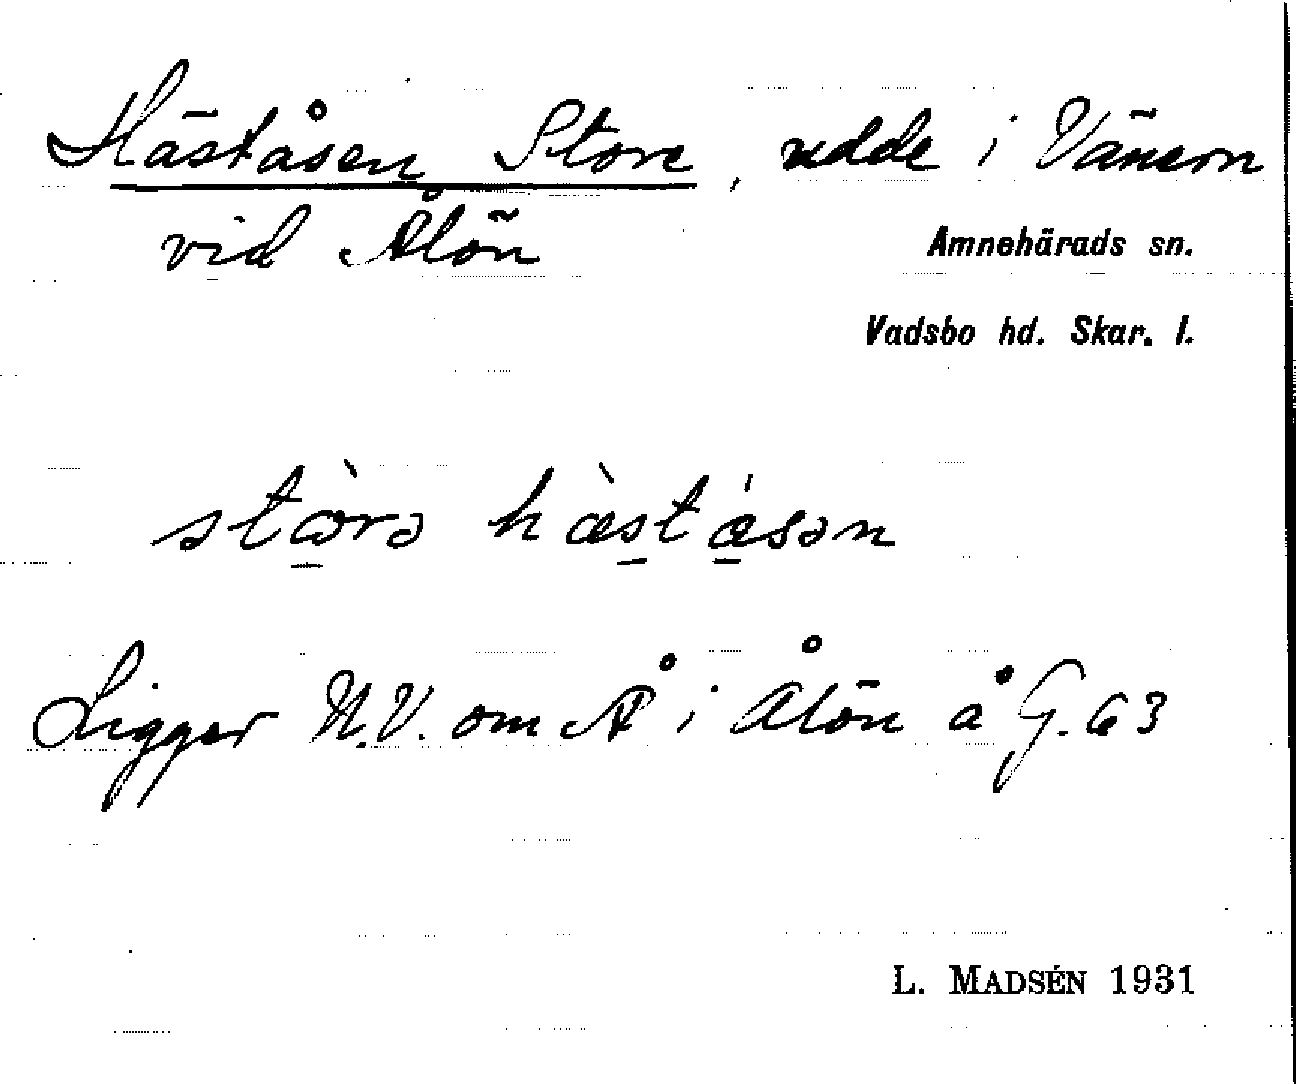 Häståsen Store, udde i Vänern
vid Ålön
Amnehärads sn.
Vadsbo hd. Skar. l.
stòrə hæ̀stásən
Ligger N.V. om Å i Ålön å G. 63
L. MADSÉN 1931